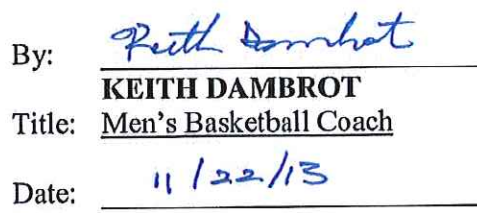 By: Keith Dambrot
KEITH DAMBROT
Title: Men's Basketball Coach
Date: 11/22/13